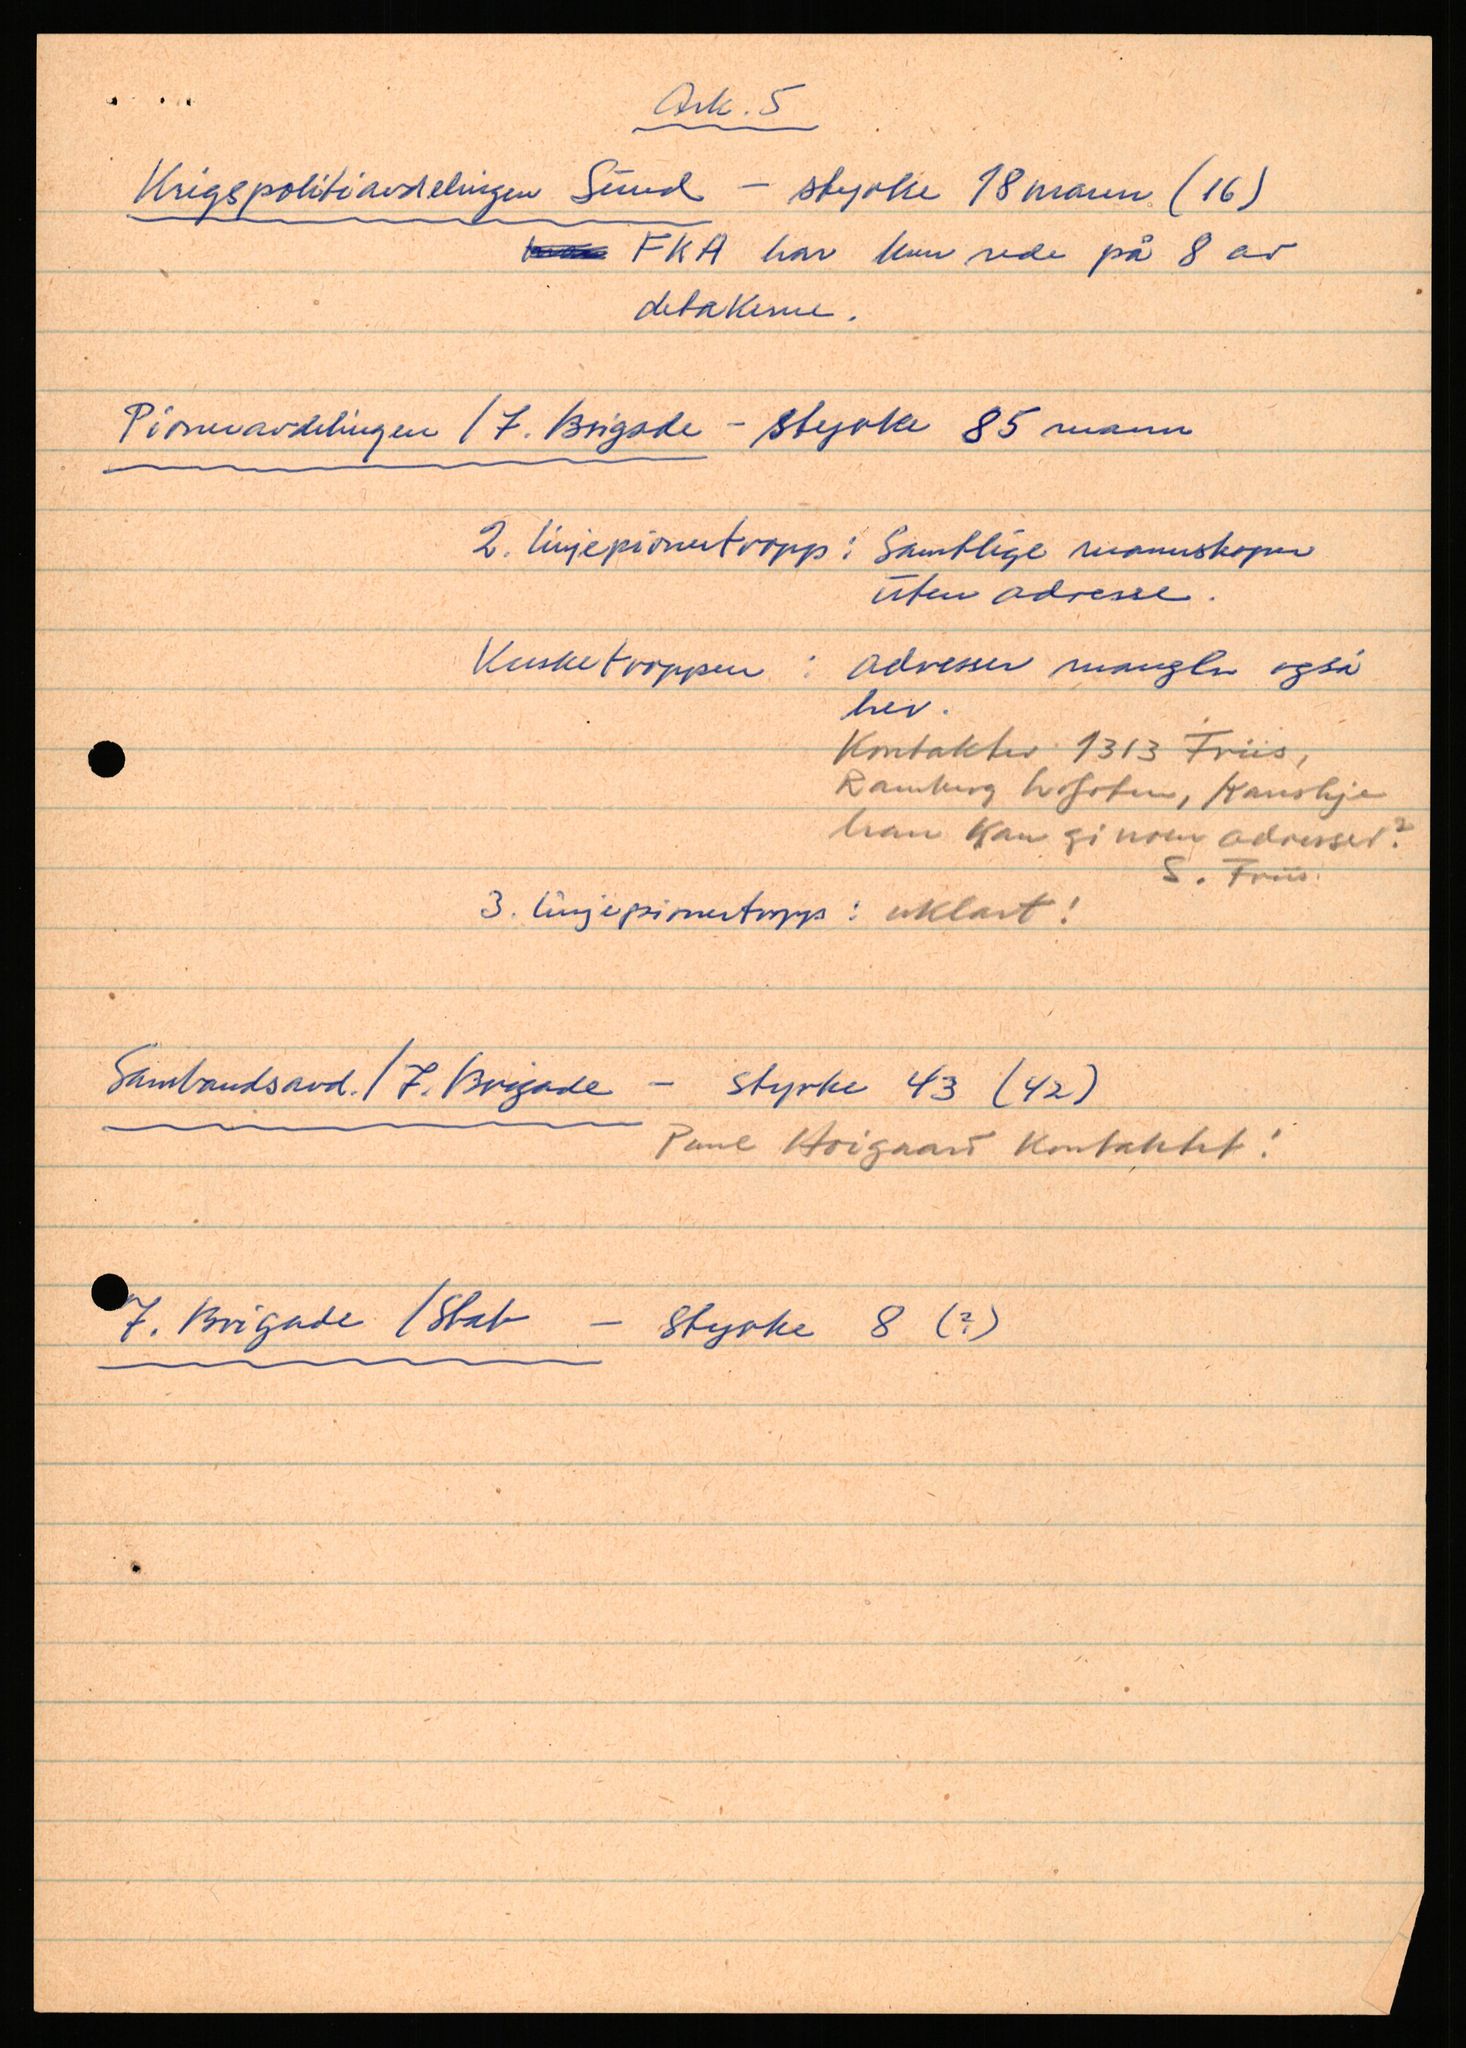 Ark. 5
Krigspolitiavdelingen Sund - styrke 18 mann (16)
FKA har kun rede på 8 av
detakerne.
Pioneravdelingen / 7. Brigade - styrke 85 mann
2. linjepionertropp : Samtlige mannskaper
uten adresse.
Kusketroppen : adresser mangler også
her.
Kontakter 1313 Friis,
Ramberg Lofoten, kanskje
han kan gi noen adresser?
S. Friis.
3. linjepionertropp : uklart!
Sambandsavd. / 7. Brigade - styrke 43 (42)
Paul Hoigaard kontaktet!
7. Brigade / Stab - styrke 8 (?)